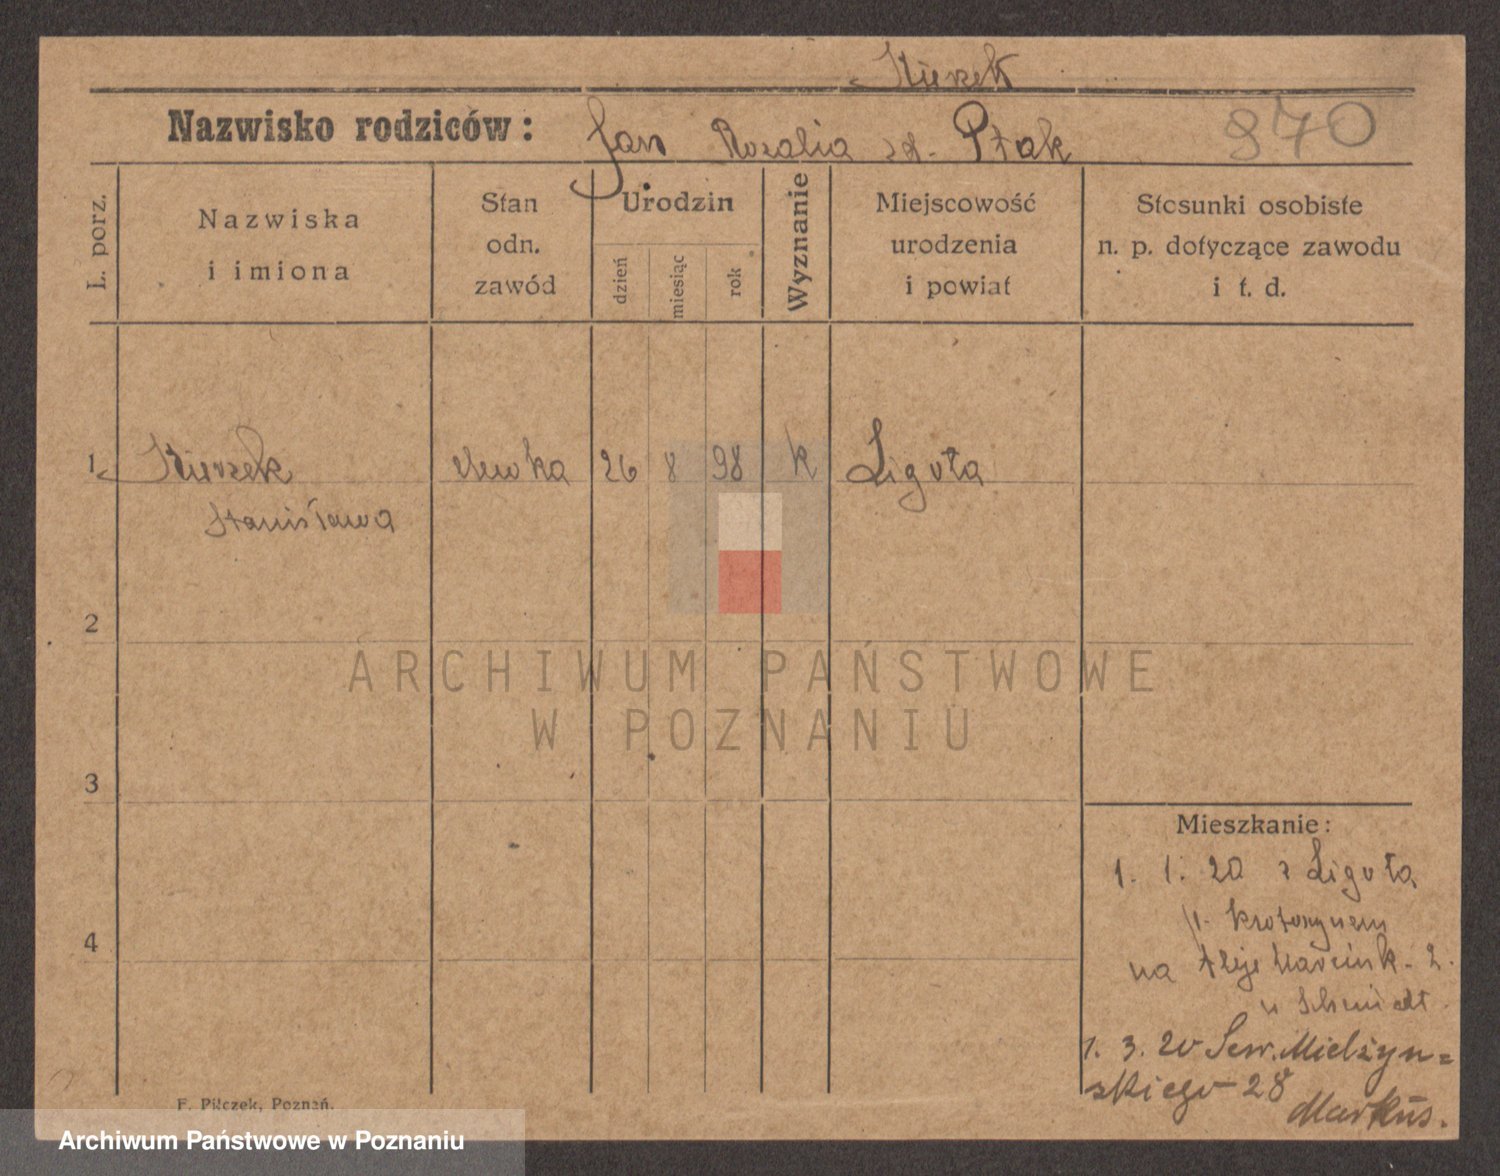 Kierzek
Nazwisko rodziców: Jan Rozalia zd. Ptak 970
L. porz.
Nazwiska
i imiona
Stan
odn.
zawód
Urodzin
dzień
miesiąc
rok
Wyznanie
Miejscowość
urodzenia
i powiat
Stosunki osobiste
n. p. dotyczące zawodu
i t. d.
1 Kierzek elewka 26 8 98 k Ligota
Stanisława
2
ARCHIWUM PAŃSTWOWE
W POZNANIU
3
Mieszkanie:
1. 1. 20 z Ligota
p. Krotoszynem
4
na Aleje Marcink. 2.
u Schmidt.
1. 3. 20 Sew. Mielżyn=
skiego 28
Markus.
F. Pilczek, Poznań.
Archiwum Państwowe w Poznaniu